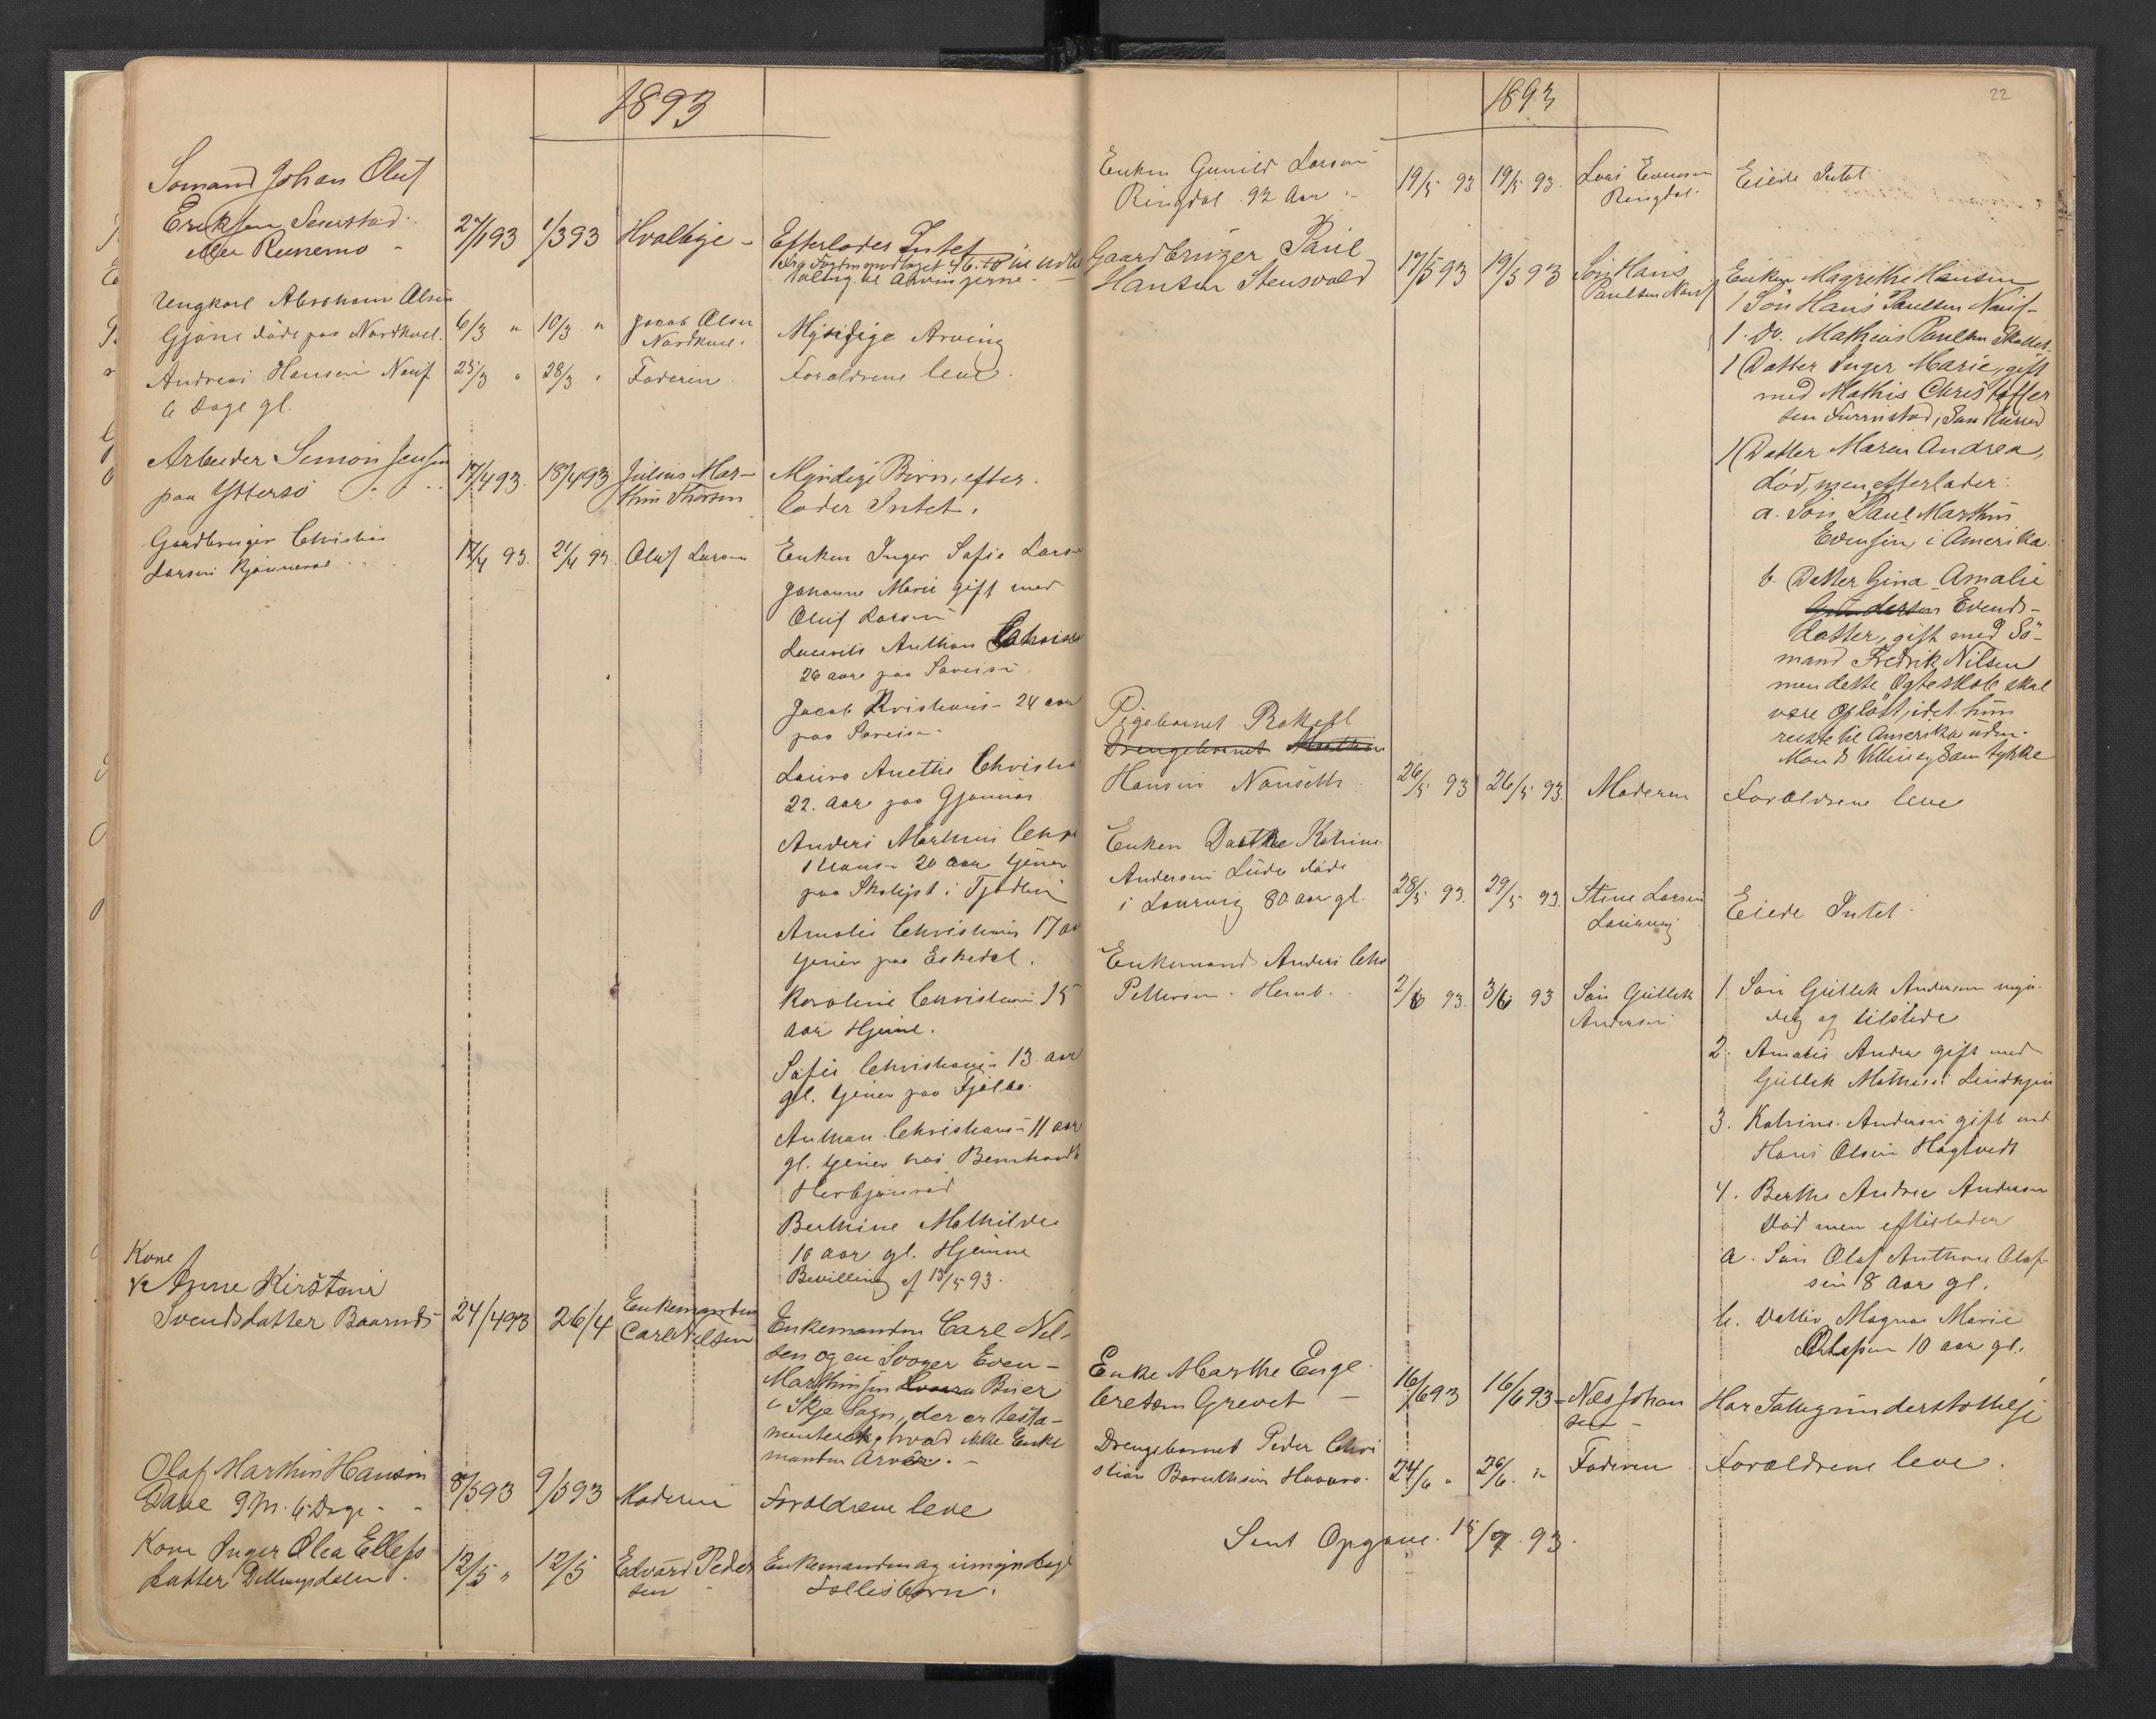 1893
Sømand Johan Oluf
Eriksen Seierstad
eller Rennemo - 27/1 93 1/3 93 Hvalbye - Efterlader Intet
Ungkarl Abraham Olsen
Gjøne døde paa Nordkvel. 6/3 " 10/3 " Jacob Olsen Myndige Arving
Nordkvel.
Andreas Hansen Nauf 25/3 " 28/3 " Faderen Forældrene leve.
6 Dage gl.
Arbeider Simon Jensen
paa Yttersö 17/4 93. 18/4 93 Julius Mar- Myndige Börn, efter
thin Thorsen lader Intet.
Gaardbruger Christian
Larsen Kjønnerød 17/4 93. 21/4 93. Oluf Larsen Enken Inger Sofie Larsen
Johanne Marie gift med
Oluf Larsen
Laurits Anthon
26 aar paa Søreise
Jacob Kristians- 24 aar
paa Søreise
Laura Anethe Christia
22. Aar paa Gjønnes
Anders Marthin Chri
stians- 20 aar tjener
paa Skalist i Tjødling
Amalie Christians 17 aar
tjener paa Eskedal.
Karoline Christians 15
aar Hjeme.
Sofie Christians- 13 aar
gl. tjener paa Fjelbo.
Anthon Christians- 11 aar
gl. tjener hos Bernhardt
Herbjønrød
Berthine Mathilde
10 aar gl. Hjemme
Bevilling af 13/5 93.
Kone
Anne Kirstine
Svendsdatter Baarnds 24/4 93 26/4 Enkemanden
Carl Nilsen Enkemanden Carl Nil-
sen og en Svoger Even-
Marthinsen Buer
i Skje Sogn, der er testa-
menteret hvad ikke Enke
manden Arver. -
Olaf Marthin Hansen
Dave 9 M. 6 Dage - 8/5 93 9/5 93 Moderen Forældrene leve
Kone Inger Olea Ellefs
datter Dillingsdalen. 12/5 " 12/5 Edvard Peder
sen Enkemanden og umyndige
Fællesbörn.
1893
22
Enken Gunild Larsen
Ringdal. 92 Aar - 19/5 93 19/5 93. Lars Evensen
Ringdal. Eiede Intet
Gaardbruger Paul
Hansen Stensvold 17/5 93 19/5 93 Sön Hans
Paulsen Nauf Enken Magrethe Hansen
1 Sön Hans Paulsen Nauf-
1. Do. Mathias Paulsen
1 Datter Inger Marie, gift
med Mathis Christoffer
sen Furrustad, Sandherred
1 Datter Maren Andrea,
död, men efterlader:
a. Sön Paul Marthin
Evensen, i Amerika.
b. Datter Gina Amalie
Evends-
datter, gift med Sö-
mand Fredrik Nilsen
men dette Ægteskab skal
være Oplöst, idet hun
reiste til Amerika uden
Mands Villie og Samtykke
Pigebarnet Rakel
Drengebarnet Marthin
Hansen Nauseth 26/5 93 26/5 93. Moderen Forældrene leve
Enken Dorthe Katrine
Andersen Lude döde
i Laurvig 80 aar gl. 28/5 93. 29/5 93. Stine Larsen
Laurvig Eiede Intet
Enkemand Anders Chr
Pettersen Hemb. 2/6 93. 3/6 93 Sön Gullek
Andersen 1 Sön Gullik Andersen myn-
dig og tilstede
2. Amalie Andrea gift med
Gullik Mathias Lindhjem
3. Katrine Andersen gift med
Hans Olsen Hagtvedt
4. Berthe Andrea Andersen
död men efterlader
a. Sön Olaf Anthon Olaf-
sen 8 Aar gl.
b. Datter Magna Marie
Olafsen 10 aar gl.
Enke Marthe Enge
bretsen Grevet - 16/6 93 16/6 93 - Nils Johan
sen - Har Fattigunderstøttelse
Drengebarnet Peder Chri
stian Berntsen Haavre. 24/6 " 26/6. " Faderen Forældrene leve.
Sent Opgave. 15/7 93.